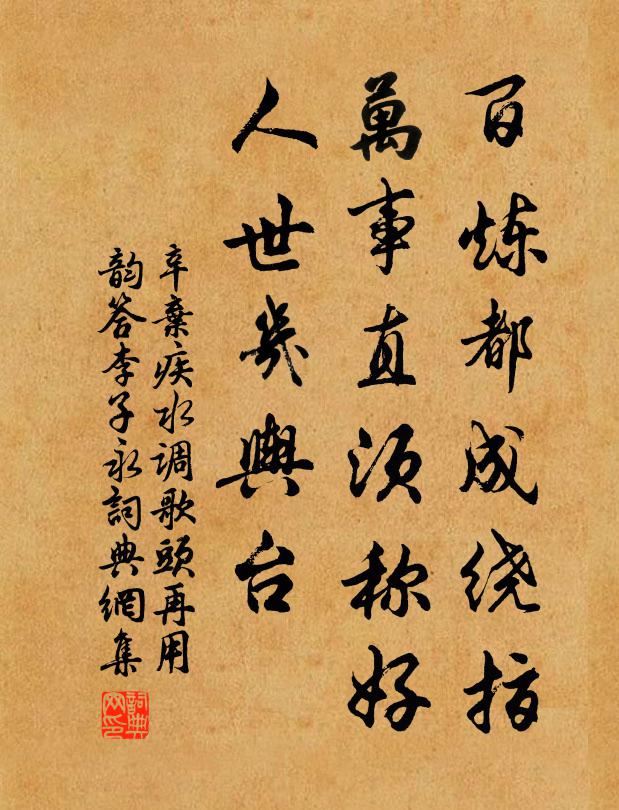 百炼都成绕指
萬事直须称好
人世幾輿台
辛棄疾水调歌頭再用
韵答李子永詞典網集
詞典
网印